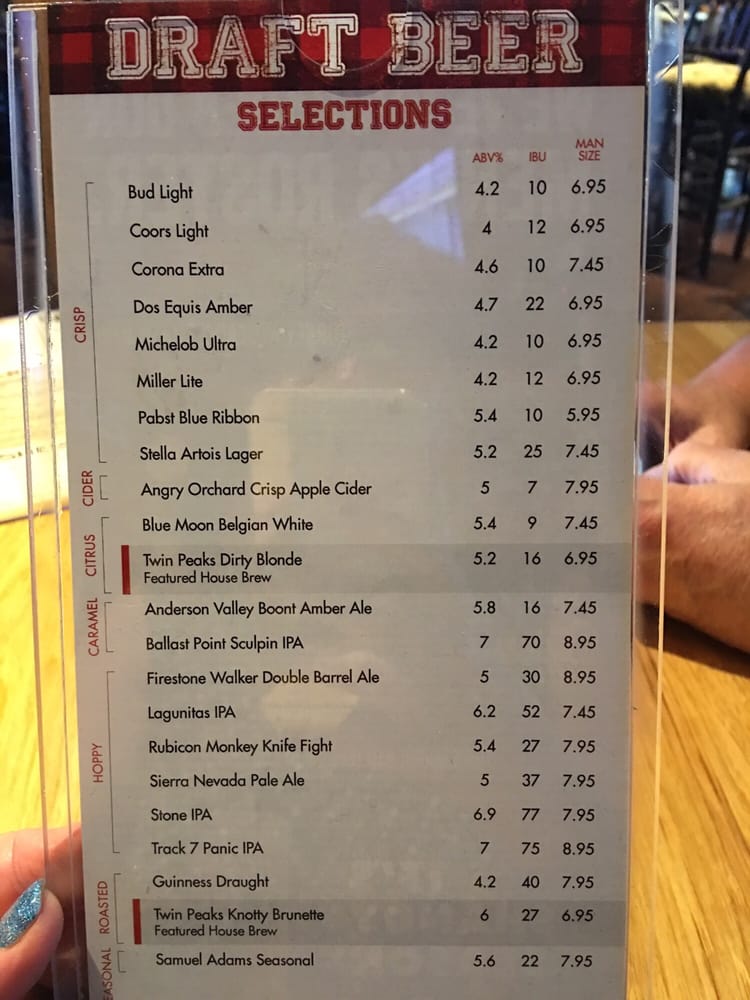 DRAFT BEER
SELECTIONS
ABV% IBU MAN SIZE
CRISP
Bud Light 4.2 10 6.95
Coors Light 4 12 6.95
Corona Extra 4.6 10 7.45
Dos Equis Amber 4.7 22 6.95
Michelob Ultra 4.2 10 6.95
Miller Lite 4.2 12 6.95
Pabst Blue Ribbon 5.4 10 5.95
Stella Artois Lager 5.2 25 7.45
CIDER
Angry Orchard Crisp Apple Cider 5 7 7.95
CITRUS
Blue Moon Belgian White 5.4 9 7.45
Twin Peaks Dirty Blonde 5.2 16 6.95
Featured House Brew
CARAMEL
Anderson Valley Boont Amber Ale 5.8 16 7.45
Ballast Point Sculpin IPA 7 70 8.95
HOPPY
Firestone Walker Double Barrel Ale 5 30 8.95
Lagunitas IPA 6.2 52 7.45
Rubicon Monkey Knife Fight 5.4 27 7.95
Sierra Nevada Pale Ale 5 37 7.95
Stone IPA 6.9 77 7.95
Track 7 Panic IPA 7 75 8.95
ROASTED
Guinness Draught 4.2 40 7.95
Twin Peaks Knotty Brunette 6 27 6.95
Featured House Brew
EASONAL
Samuel Adams Seasonal 5.6 22 7.95